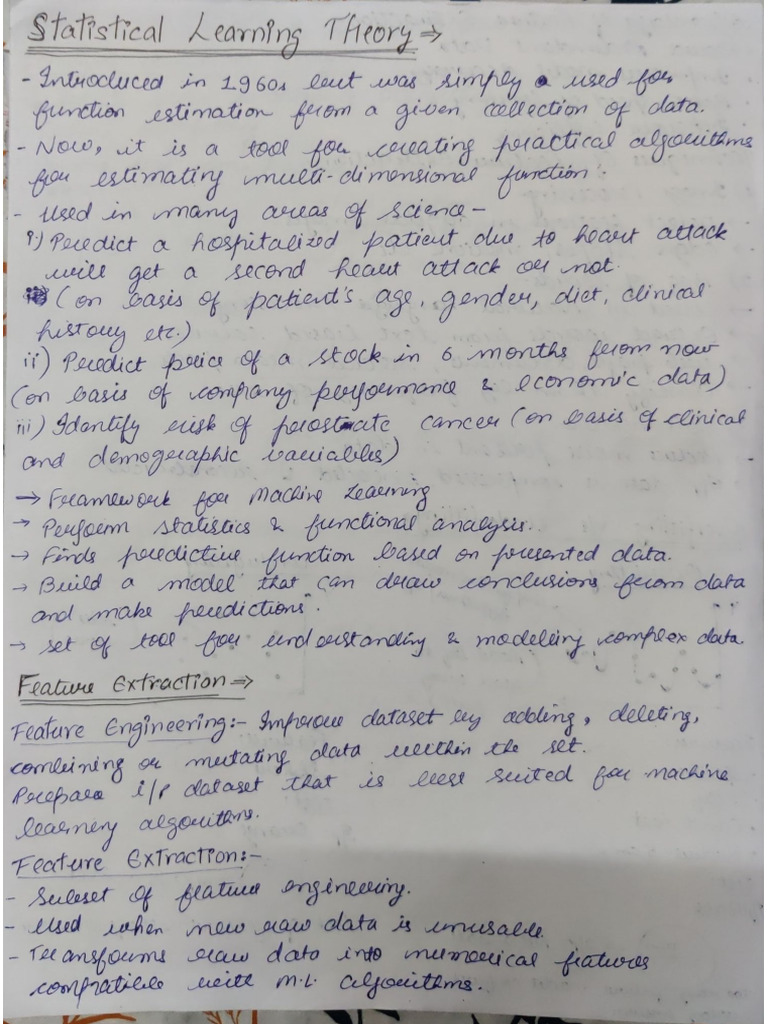 Statistical Learning Theory ⇒
- Introduced in 1960s but was simply used for
function estimation from a given collection of data.
- Now, it is a tool for creating practical algorithms
for estimating multi-dimensional function.
- Used in many areas of science -
i) Predict a hospitalized patient due to heart attack
will get a second heart attack or not.
(on basis of patient's age, gender, diet, clinical
history etc.)
ii) Predict price of a stock in 6 months from now
(on basis of company performance & economic data)
iii) Identify risk of prostrate cancer (on basis of clinical
and demographic variables)
→ Framework for Machine Learning
→ Perform statistics & functional analysis.
→ Finds predictive function based on presented data.
→ Build a model that can draw conclusions from data
and make predictions.
→ set of tool for understanding & modelling complex data.
Feature Extraction ⇒
Feature Engineering:- Improve dataset by adding, deleting,
combining or mutating data within the set.
Prepare i/p dataset that is best suited for machine
learning algorithms.
Feature Extraction:-
- Subset of feature engineering.
- Used when new raw data is unusable.
- Transforms raw data into numerical features
compatible with M.L. algorithms.